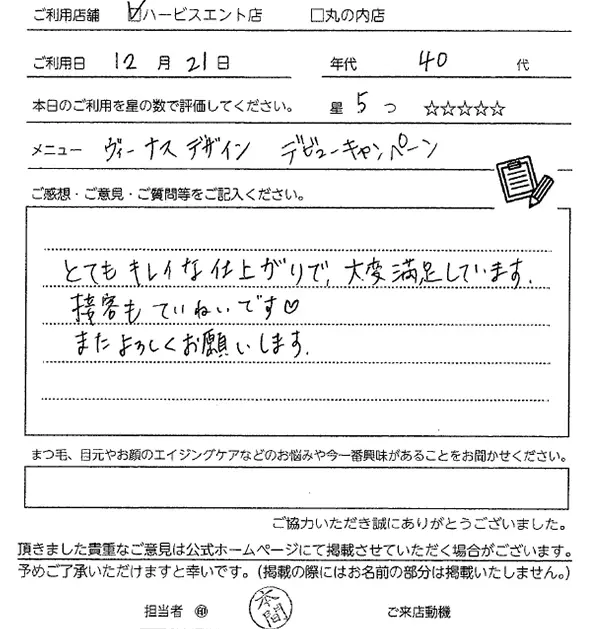 ご利用店舗 ☑ハービスエント店 □丸の内店
ご利用日 12 月 21 日 年代 40 代
本日のご利用を星の数で評価してください。 星 5 つ ☆☆☆☆☆
メニュー ヴィーナスデザイン デビューキャンペーン
ご感想・ご意見・ご質問等をご記入ください。
とてもキレイな仕上がりで、大変満足しています.
接客もていねいです♡
またよろしくお願いします.
まつ毛、目元やお顔のエイジングケアなどのお悩みや今一番興味があることをお聞かせください。
ご協力いただき誠にありがとうございました。
頂きました貴重なご意見は公式ホームページにて掲載させていただく場合がございます。
予めご了承いただけますと幸いです。(掲載の際にはお名前の部分は掲載いたしません。)
担当者 ㊞ 本間 ご来店動機